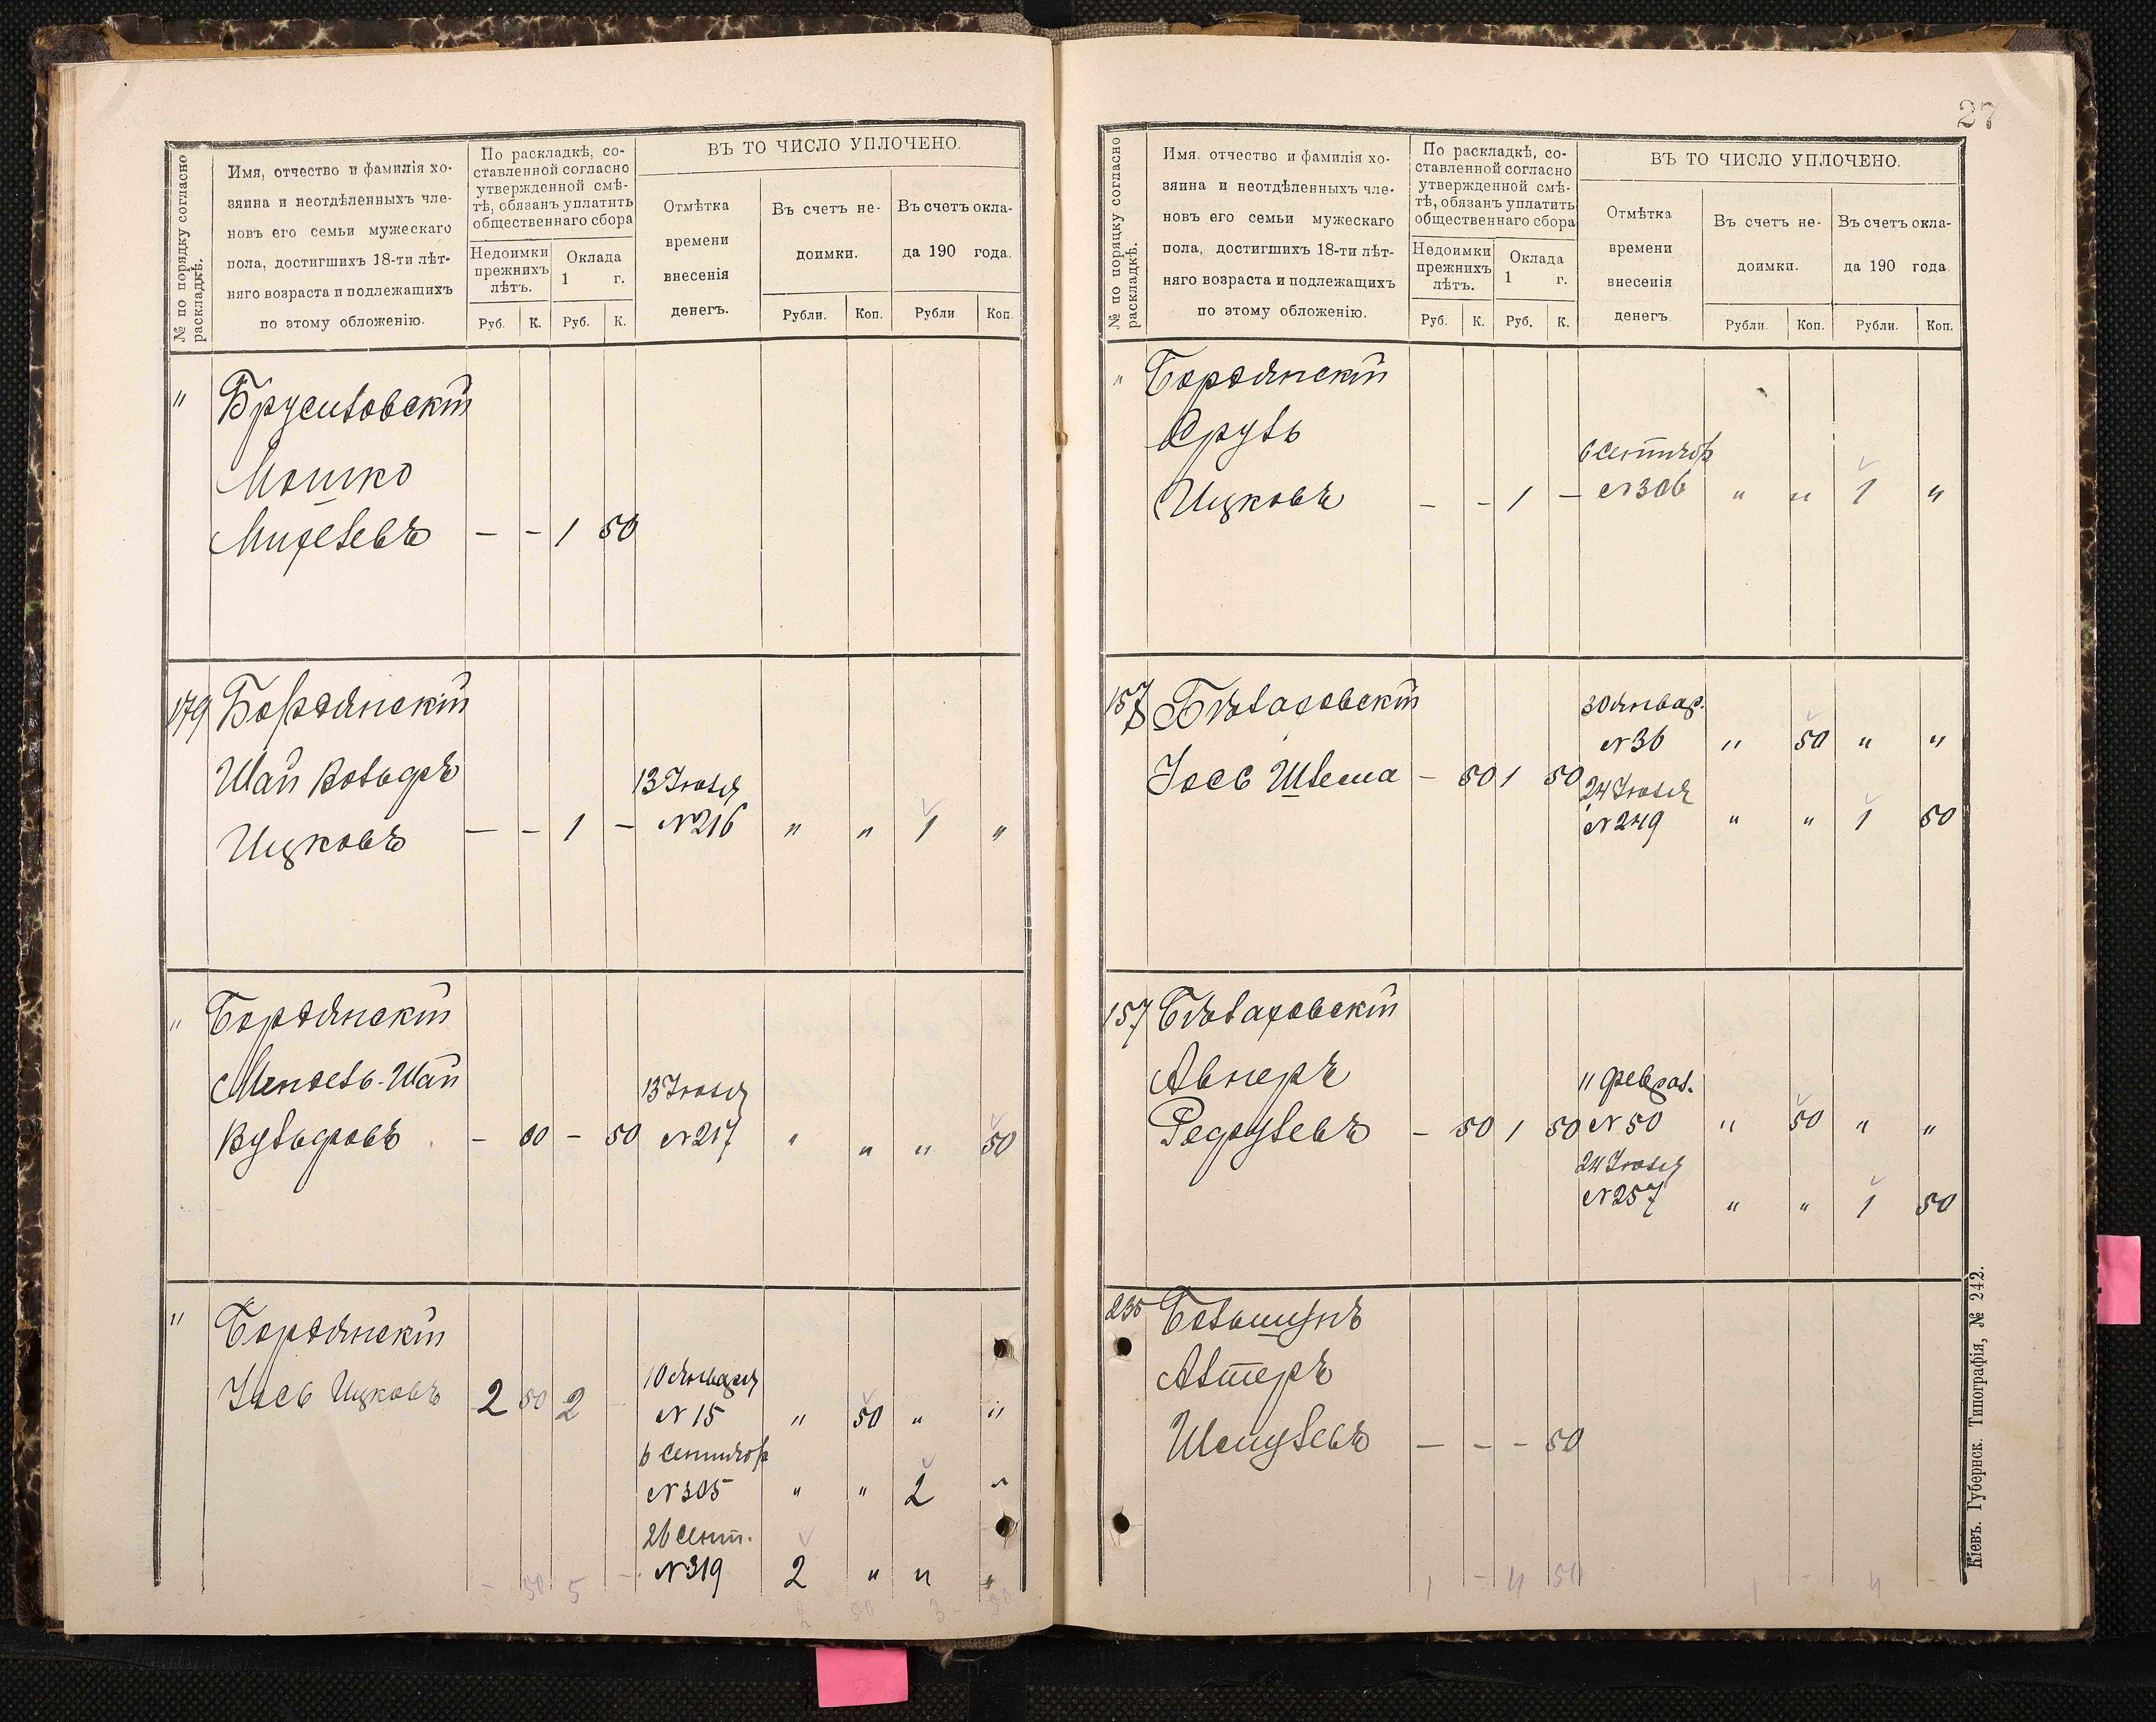 № по порядку согласно раскладкѣ.
Имя, отчество и фамилія хо-
зяина и неотдѣленныхъ чле-
новъ его семьи мужескаго
пола, достигшихъ 18-ти лѣт-
няго возраста и подлежащихъ
по этому обложенію.
По раскладкѣ, со-
ставленной согласно
утвержденной смѣ-
тѣ, обязанъ уплатить
общественнаго сбора
Недоимки
прежнихъ
лѣтъ.
Оклада
1 г.
Руб. К. Руб. К.
ВЪ ТО ЧИСЛО УПЛОЧЕНО.
Отмѣтка
времени
внесенія
денегъ.
Въ счетъ не-
доимки.
Въ счетъ окла-
да 190 года.
Рубли. Коп. Рубли Коп.
" Брусиловскій
Мошко
Михелевъ — – 1 50
179 Бородянскій
Шая Вольфъ
Ицковъ — – 1 – 13 Іюля
№ 216 " " 1 "
" Бородянскій
Мендель-Шая
Вульфовъ – – 50
13 Іюля
№ 217 " " " 50
" Бородянскій
Іось Ицковъ 2 50 2 –
10 Января
№ 15 " 50 " "
6 Сентября
№ 305 " " 2 "
26 Сент.
№ 319 2 " " "
– 50 5 –
2 50 3 50
27
№ по порядку согласно раскладкѣ.
Имя, отчество и фамилія хо-
зяина и неотдѣленныхъ чле-
новъ его семьи мужескаго
пола, достигшихъ 18-ти лѣт-
няго возраста и подлежащихъ
по этому обложенію.
По раскладкѣ, со-
ставленной согласно
утвержденной смѣ-
тѣ, обязанъ уплатить
общественнаго сбора
Недоимки
прежнихъ
лѣтъ.
Оклада
1 г.
Руб. К. Руб. К.
ВЪ ТО ЧИСЛО УПЛОЧЕНО.
Отмѣтка
времени
внесенія
денегъ
Въ счетъ не-
доимки.
Въ счетъ окла-
да 190 года
Рубли. Коп. Рубли. Коп.
" Бородянскій
Сруль
Ицковъ – – 1 –
6 Сентябр
№ 306 " " 1 "
157 Бѣлаховскій
Іось Шлема – 50 1 50
30 Январ.
№ 36 " 50 " "
24 Іюля
№ 249 " " 1 50
157 Бѣлаховскій
Авнеръ
– 50 1 50
11 Феврал.
№ 50 " 50 " "
24 Іюля
№ 257 " " 1 50
235 Большунъ
Алтеръ
Шмулевъ — – – 50
1 – 4 50 1 – 4 –
Кіевъ. Губернск. Типографія, № 242.